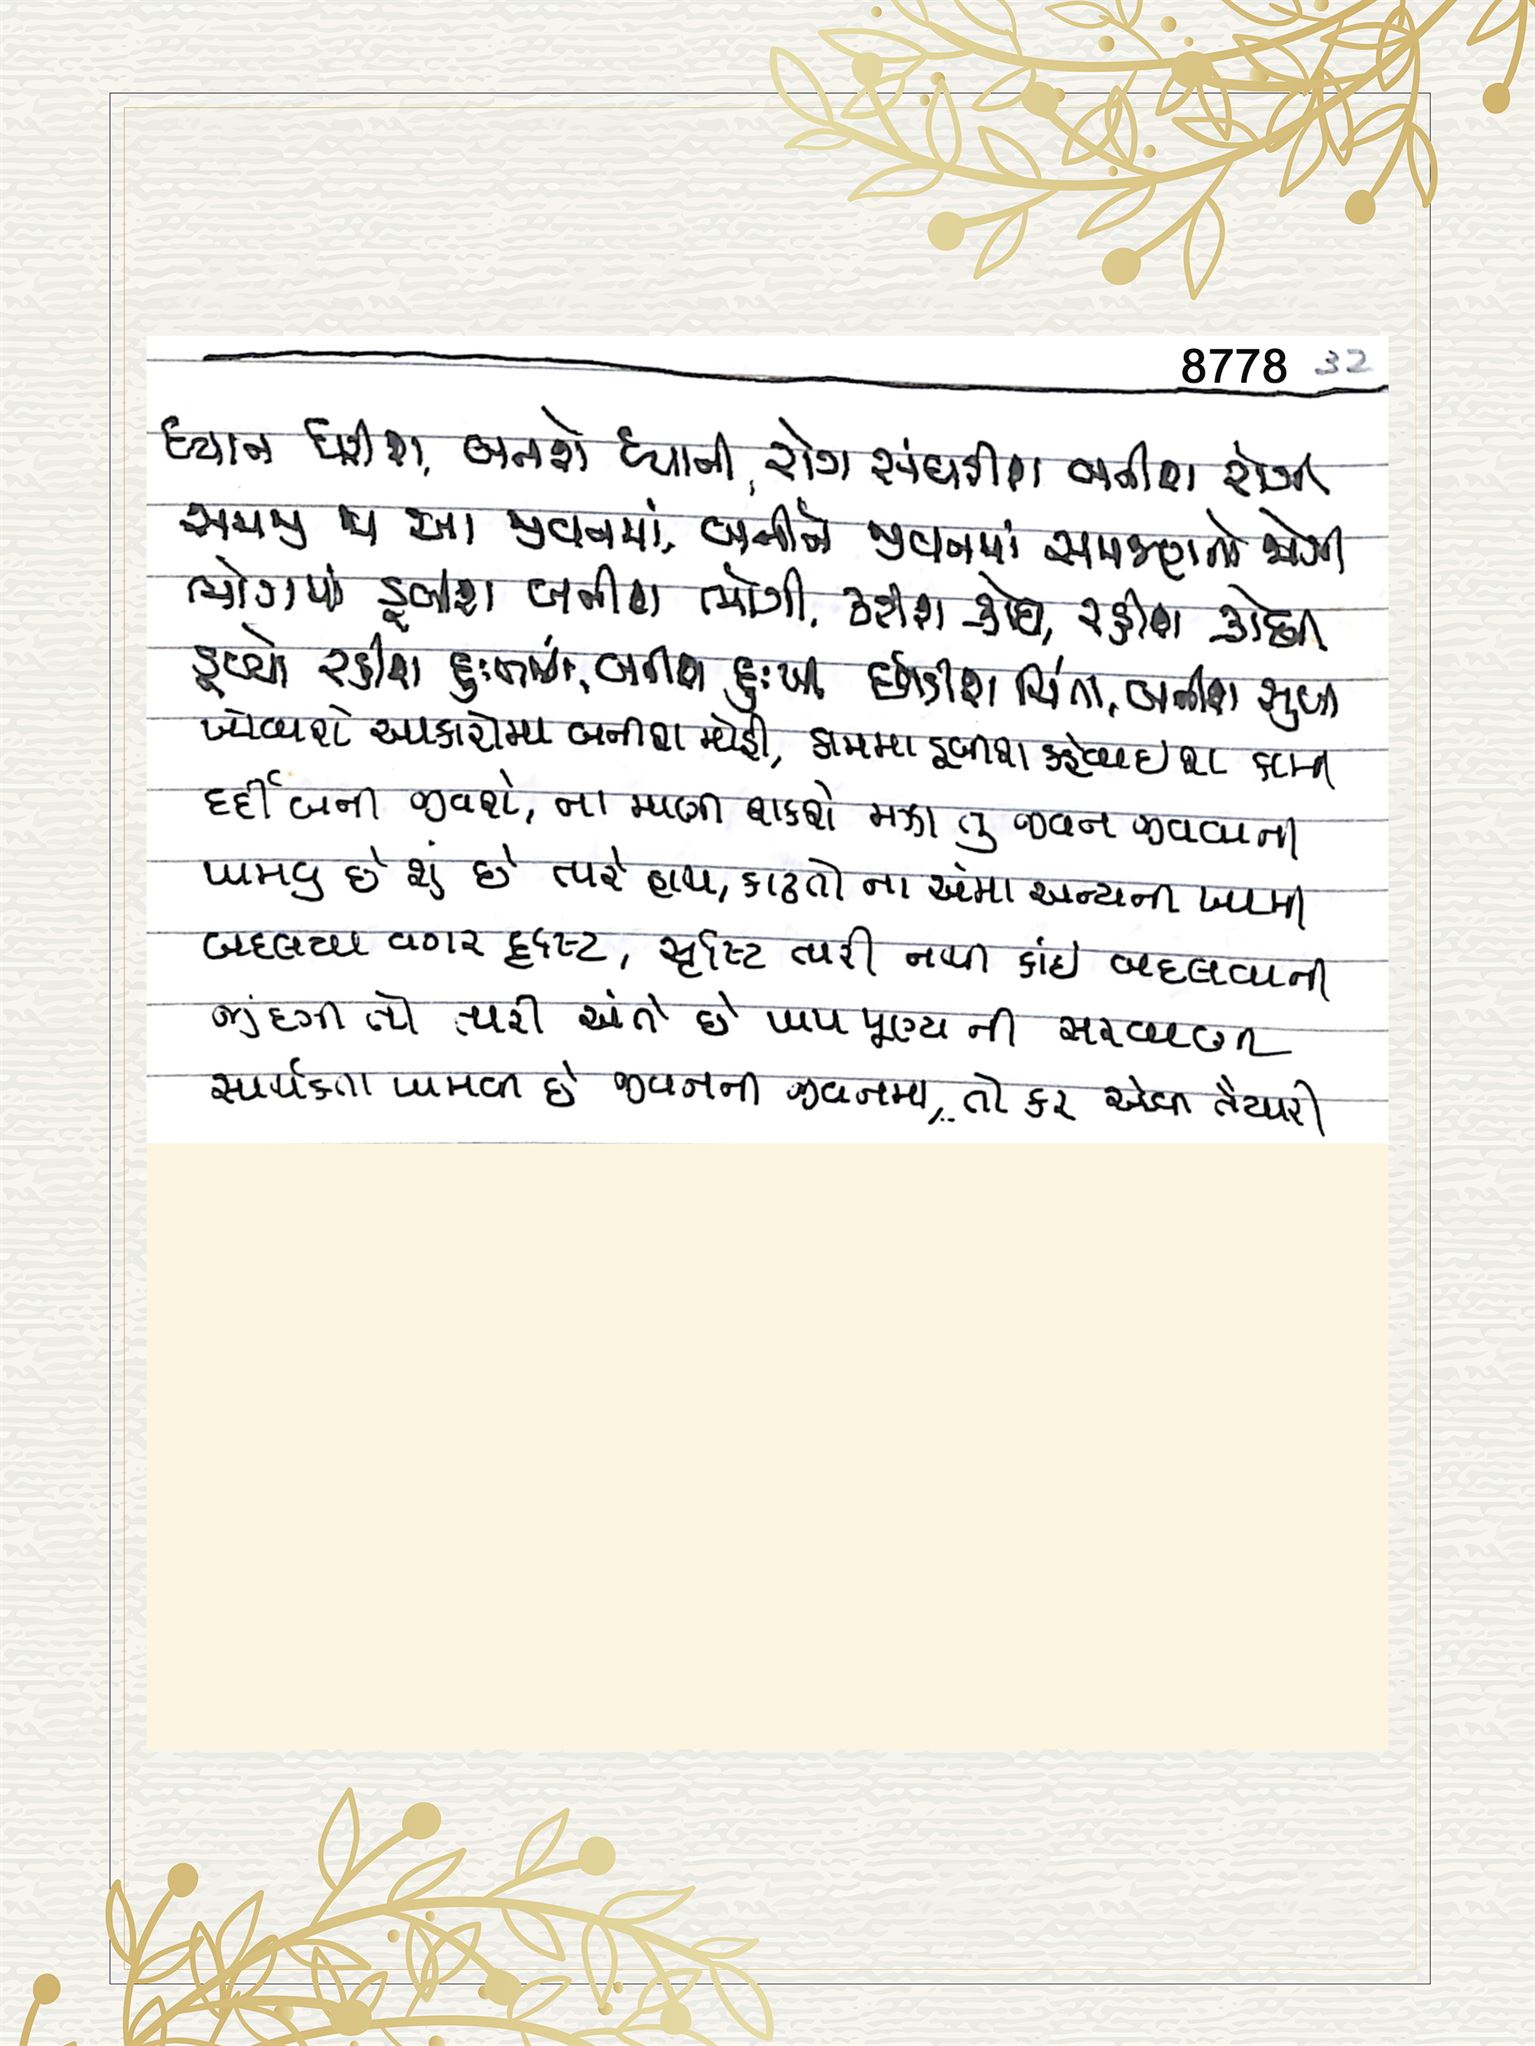 8778 32
ધ્યાન ધરીશ, બનશે ધ્યાની, રોગ સંઘરીશ બનીશ રોગી
સમજી આ જીવનમાં, બનીને જીવનમાં સમજણનો
ભોગમાં ડૂબીશ બનીશ ભોગી, કરીશ ક્રોધ, રહીશ ક્રોધી
ડૂબ્યો રહીશ દુઃખમાં, બનીશ દુઃખી છોડીશ ચિંતા, બનીશ સુખી
ખોવાશે આકારોમા બનીશ મોહી, કામમા ડૂબીશ કહેવાઇશ કામી
દર્દી બની જીવશે, ના માણી શકશે મઝા તુ જીવન જીવવાની
પામવુ છે શું છે તારે હાથ, કાઢતો ના એમા અન્યની ખામી
બદલ્યા વગર દૃષ્ટિ, સૃષ્ટિ તારી નથી કાંઇ બદલવાની
જીંદગી તો તારી અંતે છે પાપ પૂણ્ય ની સરવાણી
સાર્થકતા પામવી છે જીવનની જીવનમા, તો કર એવી તૈયારી